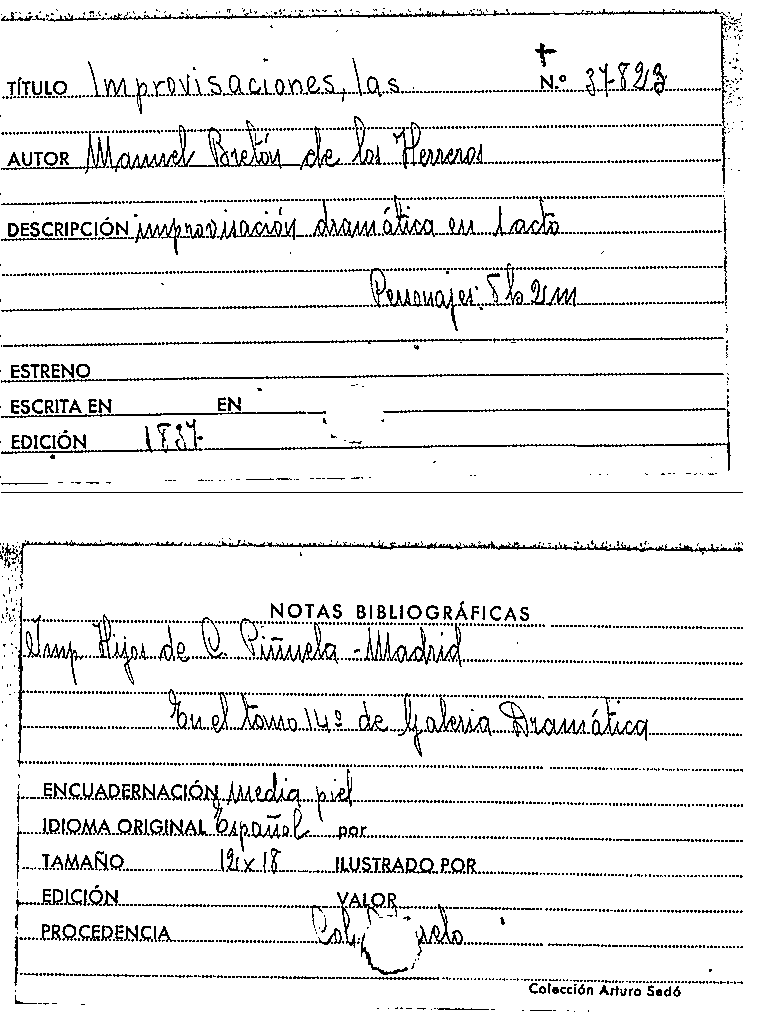 TÍTULO Improvisaciones, las N.º 37823
AUTOR Manuel Bretón de los Herreros
DESCRIPCIÓN improvisación dramática en 1 acto
Personajes: 5 h 2 m
ESTRENO
ESCRITA EN EN
EDICIÓN 1837
NOTAS BIBLIOGRÁFICAS
Imp Hijos de C. Piñuela - Madrid
En el tomo 14º de Galeria Dramática
ENCUADERNACIÓN media piel
IDIOMA ORIGINAL Español por
TAMAÑO 12 x 18 ILUSTRADO POR
EDICIÓN VALOR
PROCEDENCIA Col.
Colección Arturo Sedó